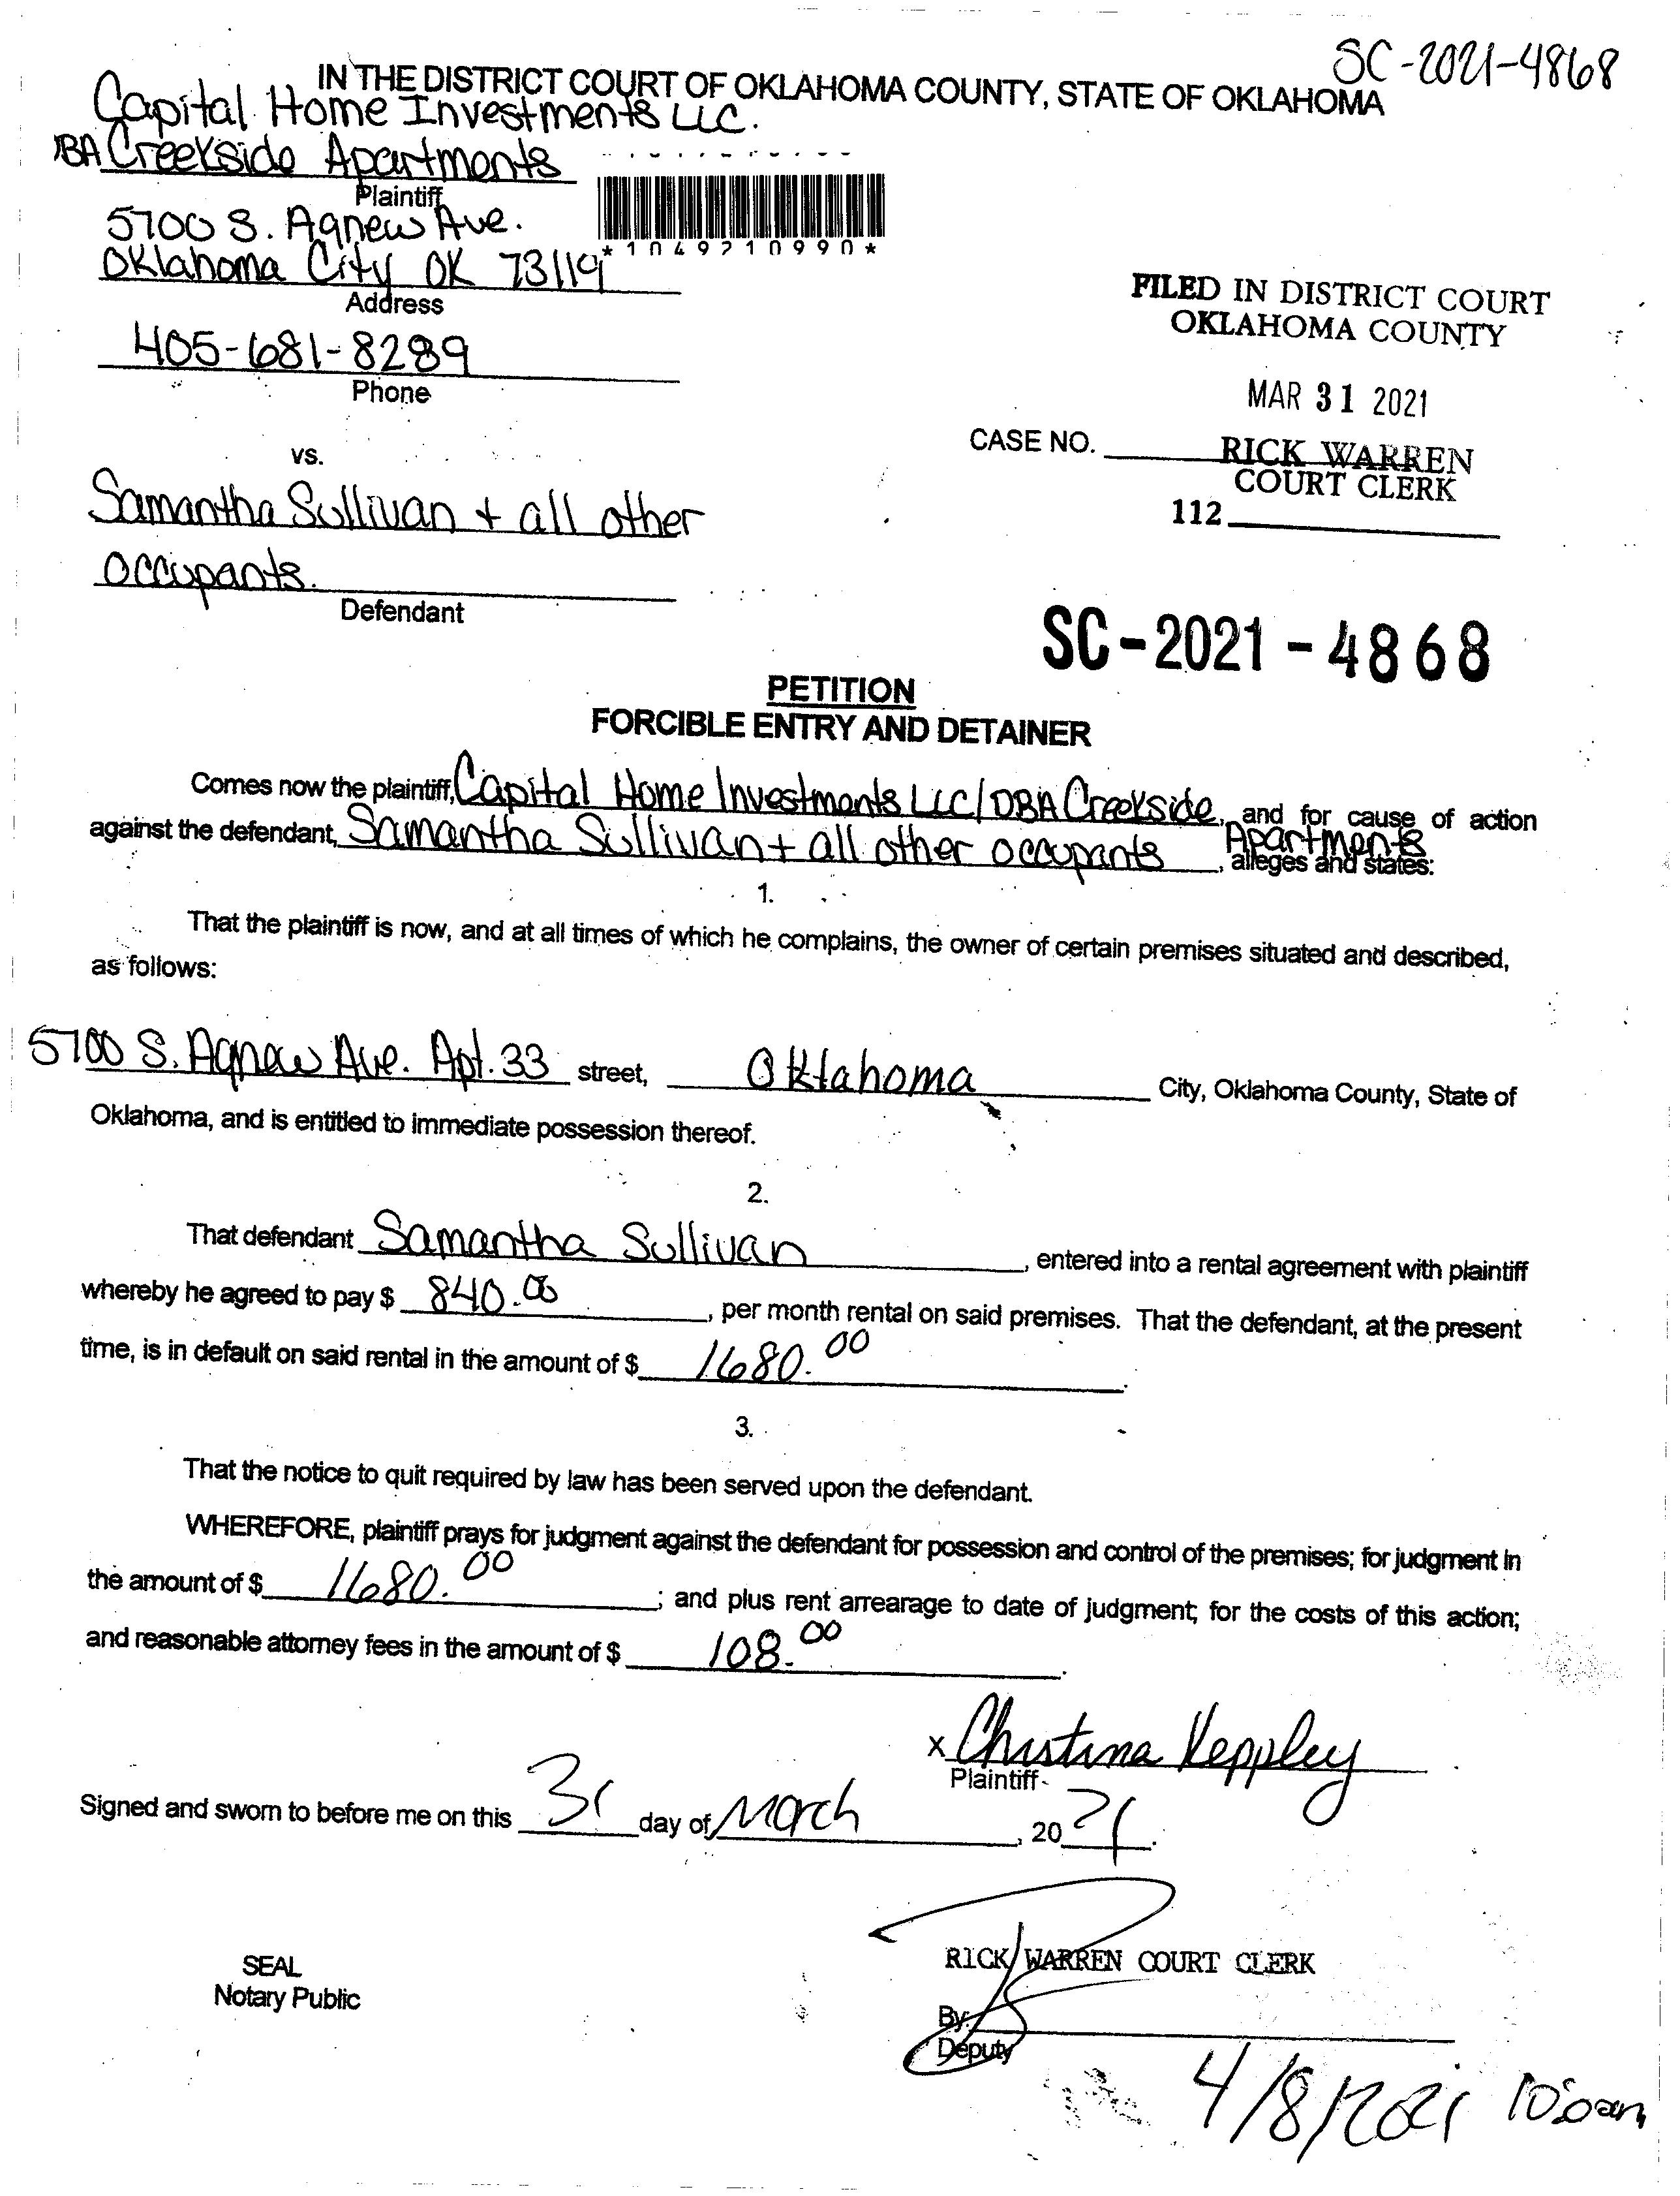 SC-2021-4868
IN THE DISTRICT COURT OF OKLAHOMA COUNTY, STATE OF OKLAHOMA
Capital Home Investments LLC.
DBA Creekside Apartments
Plaintiff
5700 S. Agnew Ave.
*1049210990*
Oklahoma City OK 73119
Address
FILED IN DISTRICT COURT
OKLAHOMA COUNTY
405-681-8289
Phone
MAR 31 2021
vs.
CASE NO.
RICK WARREN
COURT CLERK
Samantha Sullivan + all other
112
occupants.
Defendant
SC-2021-4868
PETITION
FORCIBLE ENTRY AND DETAINER
Comes now the plaintiff, Capital Home Investments LLC/DBA Creekside, and for cause of action
Apartments
against the defendant, Samantha Sullivan + all other occupants, alleges and states:
1.
That the plaintiff is now, and at all times of which he complains, the owner of certain premises situated and described,
as follows:
5700 S. Agnew Ave. Apt. 33 street, Oklahoma City, Oklahoma County, State of
Oklahoma, and is entitled to immediate possession thereof.
2.
That defendant Samantha Sullivan, entered into a rental agreement with plaintiff
whereby he agreed to pay $ 840.00, per month rental on said premises. That the defendant, at the present
time, is in default on said rental in the amount of $ 1680.00.
3.
That the notice to quit required by law has been served upon the defendant.
WHEREFORE, plaintiff prays for judgment against the defendant for possession and control of the premises; for judgment in
the amount of $ 1680.00; and plus rent arrearage to date of judgment; for the costs of this action;
and reasonable attorney fees in the amount of $ 108.00.
x Christina Keppley
Plaintiff
Signed and sworn to before me on this 31 day of March, 2021.
SEAL
Notary Public
RICK WARREN COURT CLERK
By:
Deputy
4/8/2021 10:00am